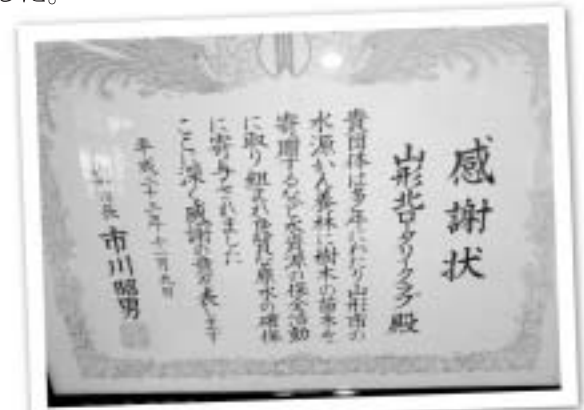 した。
感謝状
山形北ロータリークラブ殿
貴団体は多年にわたり山形市の
水源かん養林に樹木の苗木を
寄贈するなど水資源の保全活動
に取り組まれ良質な原水の確保
に寄与されました
ここに深く感謝の意を表します
平成二十三年十二月
市川昭男